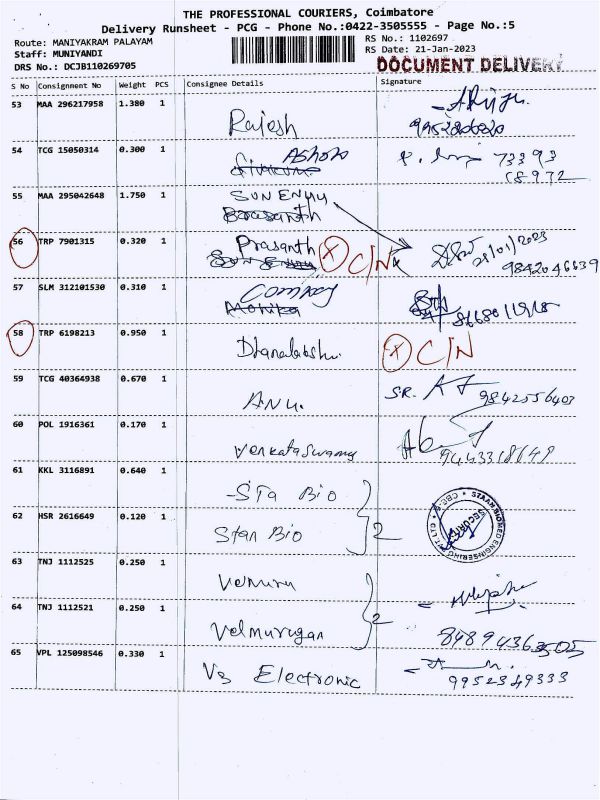 THE PROFESSIONAL COURIERS, Coimbatore
Delivery Runsheet - PCG - Phone No.:0422-3505555 - Page No.:5
Route: MANIYAKRAM PALAYAM
RS No.: 1102697
Staff: MUNIYANDI
RS Date: 21-Jan-2023
DRS No.: DCJB110269705
DOCUMENT DELIVERY
S No Consignment No Weight PCS Consignee Details Signature
53 MAA 296217958 1.380 1 Rajesh
54 TCG 15050314 0.300 1 Ashok 73393
18972
55 MAA 295042648 1.750 1 SUN ENUU
Prasanth
56 TRP 7901315 0.320 1 Prasanth X C/N 21/01/2023
9842046639
57 SLM 312101530 0.310 1 Company
Monika
58 TRP 6198213 0.950 1 X C/N
59 TCG 40364938 0.670 1 ANU. S.R. 9842556403
60 POL 1916361 0.170 1 Venkataswamy 9443318649
61 KKL 3116891 0.640 1 STa Bio
62 HSR 2616649 0.120 1 Stan Bio 2
63 TNJ 1112525 0.250 1 Velmuru
64 TNJ 1112521 0.250 1 Velmurugan 2 84894363505
65 VPL 125098546 0.330 1 V3 Electronic 9952349333
STAAN BIOMED ENGINEERING PVT. LTD. SECURITY CBE-6